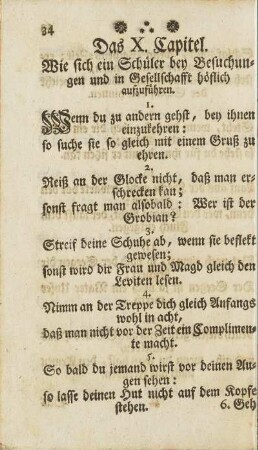 34
Das X. Capitel.
Wie sich ein Schüler bey Besuchun-
gen und in Gesellschafft höflich
aufzuführen.
1.
Wenn du zu andern gehst, bey ihnen
einzukehren:
so suche sie so gleich mit einem Gruß zu
ehren.
2.
Reiß an der Glocke nicht, daß man er-
schrecken kan;
sonst fragt man alsobald: Wer ist der
Grobian?
3.
Streif deine Schuhe ab, wenn sie beflekt
gewesen;
sonst wird dir Frau und Magd gleich den
Leviten lesen.
4.
Nimm an der Treppe dich gleich Anfangs
wohl in acht,
daß man nicht vor der Zeit ein Complimen-
te macht.
5.
So bald du jemand wirst vor deinen Au-
gen sehen:
so lasse deinen Hut nicht auf dem Kopfe
stehen. 6. Geh